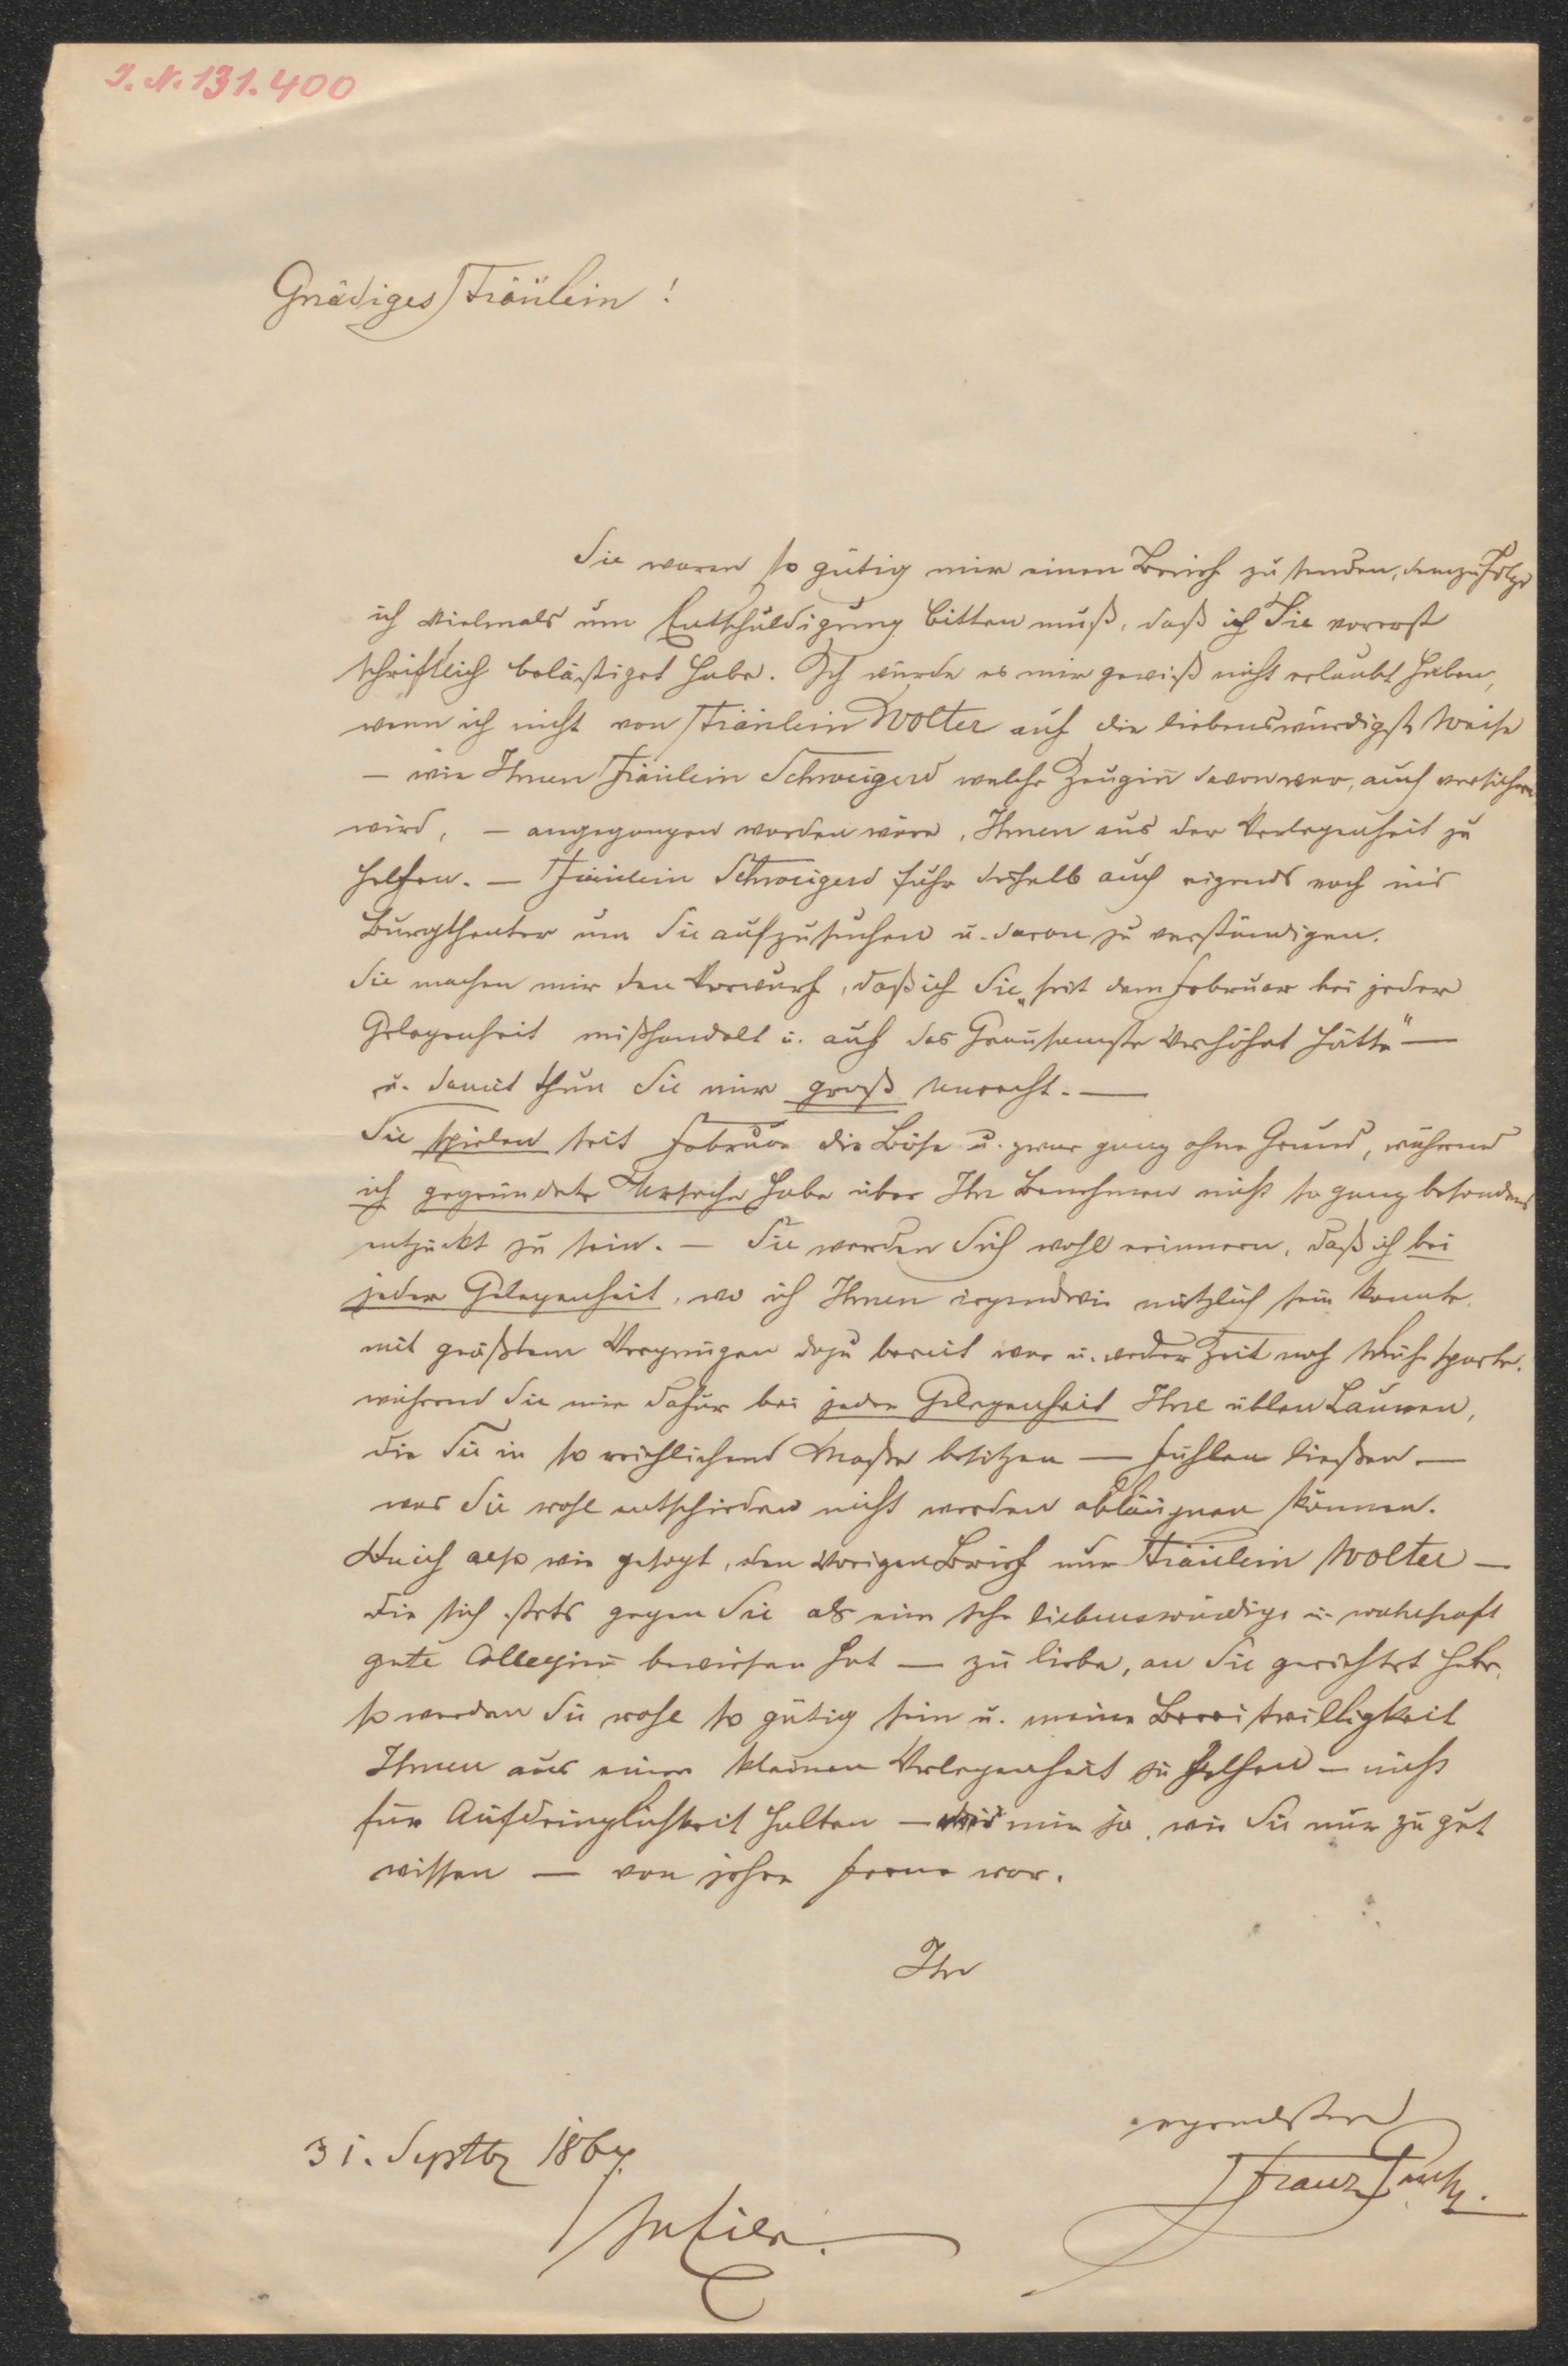 I. N. 131.400
Gnädiges Fräulein!
Sie waren so gütig mir einen Brief zu senden, demzufolge
ich vielmals um Entschuldigung bitten muß, daß ich Sie vorerst
schriftlich belästiget habe. Ich würde es mir gewiß nicht erlaubt haben,
wenn ich nicht von Fräulein Wolter auf die liebenswürdigste Weise
— wie Ihnen Fräulein Schweigerd welche Zeugin davon war, auch versichern
wird, — angegangen worden wäre, Ihnen aus der Verlegenheit zu
helfen. — Fräulein Schweigerd fuhr deshalb auch eigends noch ins
Burgtheater um Sie aufzusuchen u. davon zu verständigen.
Sie machen mir den Vorwurf, daß ich Sie „seit dem Februar bei jeder
Gelegenheit mißhandelt u. auf das Grausamste verhöhnt hätte" —
u. damit thun Sie mir groß Unrecht. —
Sie spielen seit Februar die Böse u. zwar ganz ohne Grund, während
ich gegründete Ursache habe über Ihr Benehmen nicht so ganz besonders
entzückt zu sein. — Sie werden Sich wohl erinnern, daß ich bei
jeder Gelegenheit, wo ich Ihnen irgendwie nützlich sein konnte,
mit größtem Vergnügen dazu bereit war u. weder Zeit noch Mühe sparte,
während Sie mir dafür bei jeder Gelegenheit Ihre üblen Launen,
die Sie in so reichlichem Maße besitzen — fühlen ließen —
was Sie wohl entschieden nicht werden abläugnen können.
Da ich also wie gesagt, den vorigen Brief nur Fräulein Wolter —
die sich stets gegen Sie als eine sehr liebenswürdige u. wahrhaft
gute Collegin bewiesen hat — zu liebe, an Sie gerichtet habe,
so werden Sie wohl so gütig sein u. meine Bereitwilligkeit
Ihnen aus einer kleinen Verlegenheit zu helfen — nicht
für Aufdringlichkeit halten — die mir ja, wie Sie nur zu gut
wissen — von jeher ferne war.
Ihr
ergebenster
31. Septbr 1867.
Franz